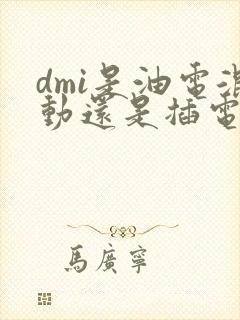 dmi是油電混
動還是插電
馬廣寧